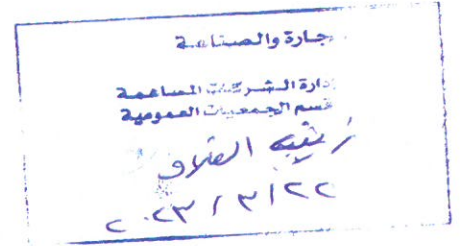 جارة والصناعة
دارة الشركات المساهمة
قسم الجمعيات العمومية
زينب العلاف
٢٠٢٣/٣/٢٢